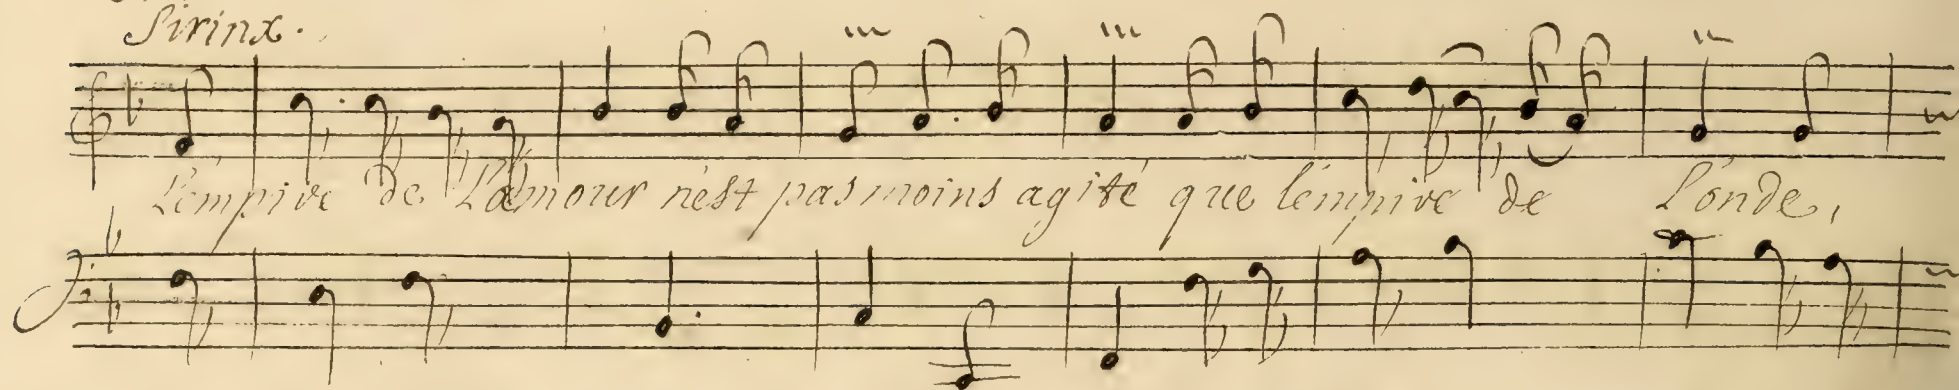 Sirinx.
L'empire de L'amour n'est pas moins agité que l'empire de L'onde,